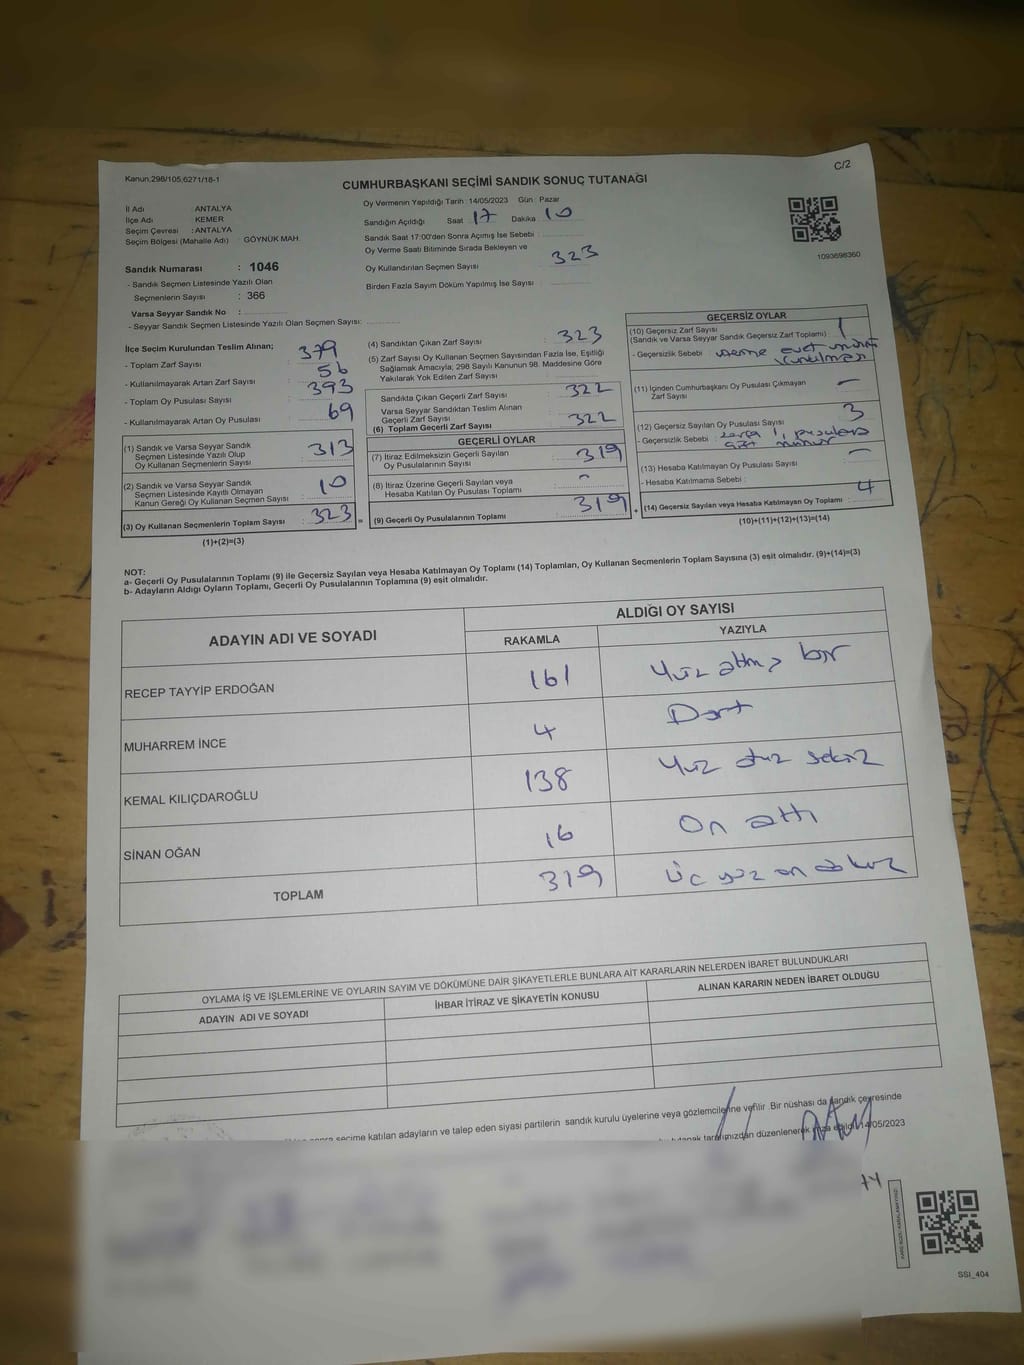 Kanun:298/105,6271/18-1
C/2
CUMHURBAŞKANI SEÇİMİ SANDIK SONUÇ TUTANAĞI
İl Adı : ANTALYA
İlçe Adı : KEMER
Seçim Çevresi : ANTALYA
Seçim Bölgesi (Mahalle Adı) : GÖYNÜK MAH.
Sandık Numarası : 1046
- Sandık Seçmen Listesinde Yazılı Olan
Seçmenlerin Sayısı : 366
Varsa Seyyar Sandık No :
- Seyyar Sandık Seçmen Listesinde Yazılı Olan Seçmen Sayısı:
Oy Vermenin Yapıldığı Tarih : 14/05/2023 Gün : Pazar
Sandığın Açıldığı Saat 17 Dakika 10
Sandık Saat 17:00'den Sonra Açımış İse Sebebi :
Oy Verme Saati Bitiminde Sırada Bekleyen ve
Oy Kullandırılan Seçmen Sayısı 323
Birden Fazla Sayım Döküm Yapılmış İse Sayısı :
1093698360
İlçe Seçim Kurulundan Teslim Alınan;
- Toplam Zarf Sayısı : 379
- Kullanılmayarak Artan Zarf Sayısı : 56
- Toplam Oy Pusulası Sayısı : 393
- Kullanılmayarak Artan Oy Pusulası : 69
(1) Sandık ve Varsa Seyyar Sandık
Seçmen Listesinde Yazılı Olup
Oy Kullanan Seçmenlerin Sayısı : 313
(2) Sandık ve Varsa Seyyar Sandık
Seçmen Listesinde Kayıtlı Olmayan
Kanun Gereği Oy Kullanan Seçmen Sayısı : 10
(3) Oy Kullanan Seçmenlerin Toplam Sayısı : 323
(1)+(2)=(3)
(4) Sandıktan Çıkan Zarf Sayısı : 323
(5) Zarf Sayısı Oy Kullanan Seçmen Sayısından Fazla İse, Eşitliği
Sağlamak Amacıyla, 298 Sayılı Kanunun 98. Maddesine Göre
Yakılarak Yok Edilen Zarf Sayısı :
Sandıkta Çıkan Geçerli Zarf Sayısı : 322
Varsa Seyyar Sandıktan Teslim Alınan
Geçerli Zarf Sayısı :
(6) Toplam Geçerli Zarf Sayısı : 322
GEÇERLİ OYLAR
(7) İtiraz Edilmeksizin Geçerli Sayılan
Oy Pusulalarının Sayısı : 319
(8) İtiraz Üzerine Geçerli Sayılan veya
Hesaba Katılan Oy Pusulası Toplamı : -
(9) Geçerli Oy Pusulalarının Toplamı : 319
GEÇERSİZ OYLAR
(10) Geçersiz Zarf Sayısı
(Sandık ve Varsa Seyyar Sandık Geçersiz Zarf Toplamı) : 1
- Geçersizlik Sebebi : üzerine evet mührü
vurulması
(11) İçinden Cumhurbaşkanı Oy Pusulası Çıkmayan
Zarf Sayısı : -
(12) Geçersiz Sayılan Oy Pusulası Sayısı : 3
- Geçersizlik Sebebi : 1, pusulara
(13) Hesaba Katılmayan Oy Pusulası Sayısı : -
- Hesaba Katılmama Sebebi :
(14) Geçersiz Sayılan veya Hesaba Katılmayan Oy Toplamı : 4
(10)+(11)+(12)+(13)=(14)
NOT:
a- Geçerli Oy Pusulalarının Toplamı (9) ile Geçersiz Sayılan veya Hesaba Katılmayan Oy Toplamı (14) Toplamları, Oy Kullanan Seçmenlerin Toplam Sayısına (3) eşit olmalıdır. (9)+(14)=(3)
b- Adayların Aldığı Oyların Toplamı, Geçerli Oy Pusulalarının Toplamına (9) eşit olmalıdır.
ADAYIN ADI VE SOYADI
ALDIĞI OY SAYISI
RAKAMLA YAZIYLA
RECEP TAYYİP ERDOĞAN 161 Yüz altmış bir
MUHARREM İNCE 4 Dört
KEMAL KILIÇDAROĞLU 138 Yüz otuz sekiz
SİNAN OĞAN 16 On altı
TOPLAM 319 Üç yüz on dokuz
OYLAMA İŞ VE İŞLEMLERİNE VE OYLARIN SAYIM VE DÖKÜMÜNE DAİR ŞİKAYETLERLE BUNLARA AİT KARARLARIN NELERDEN İBARET BULUNDUKLARI
ADAYIN ADI VE SOYADI İHBAR İTİRAZ VE ŞİKAYETİN KONUSU ALINAN KARARIN NEDEN İBARET OLDUĞU
sonra seçime katılan adayların ve talep eden siyasi partilerin sandık kurulu üyelerine veya gözlemcilerine verilir. Bir nüshası da sandık çevresinde
tutanak tarafımızdan düzenlenerek imza edildi. 14/05/2023
SSI_404